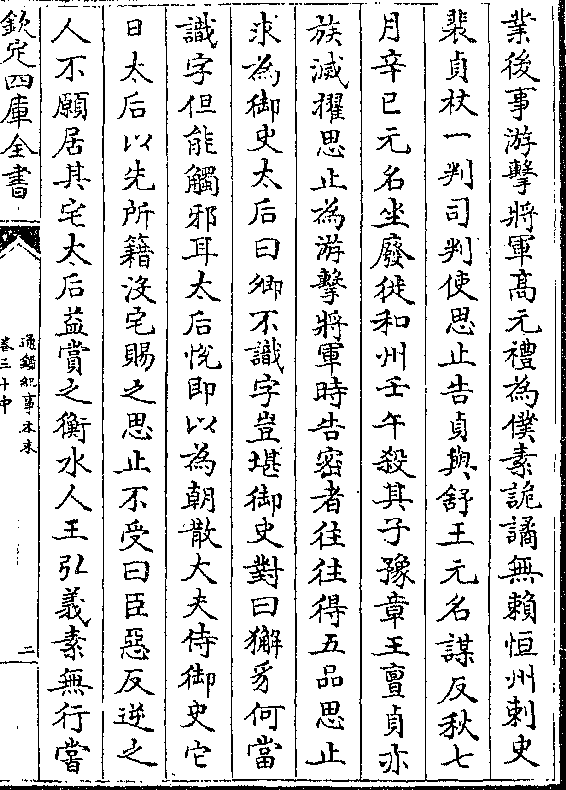 業後事游擊將軍髙元禮為僕素詭譎無賴恒州刺史
裴貞杖一判司判使思止告貞與舒王元名謀反秋七
月辛巳元名坐廢徙和州壬午殺其子豫章王亶貞亦
族滅擢思止為游擊將軍時告密者往往得五品思止
求為御史太后曰卿不識字豈堪御史對曰獬豸何當
識字但能觸邪耳太后悅即以為朝散大夫侍御史它
日太后以先所籍沒宅賜之思止不受曰臣惡反逆之
人不願居其宅太后益賞之衡水人王弘義素無行嘗
欽定四庫全書
通鑑紀事本末
卷三十中
二